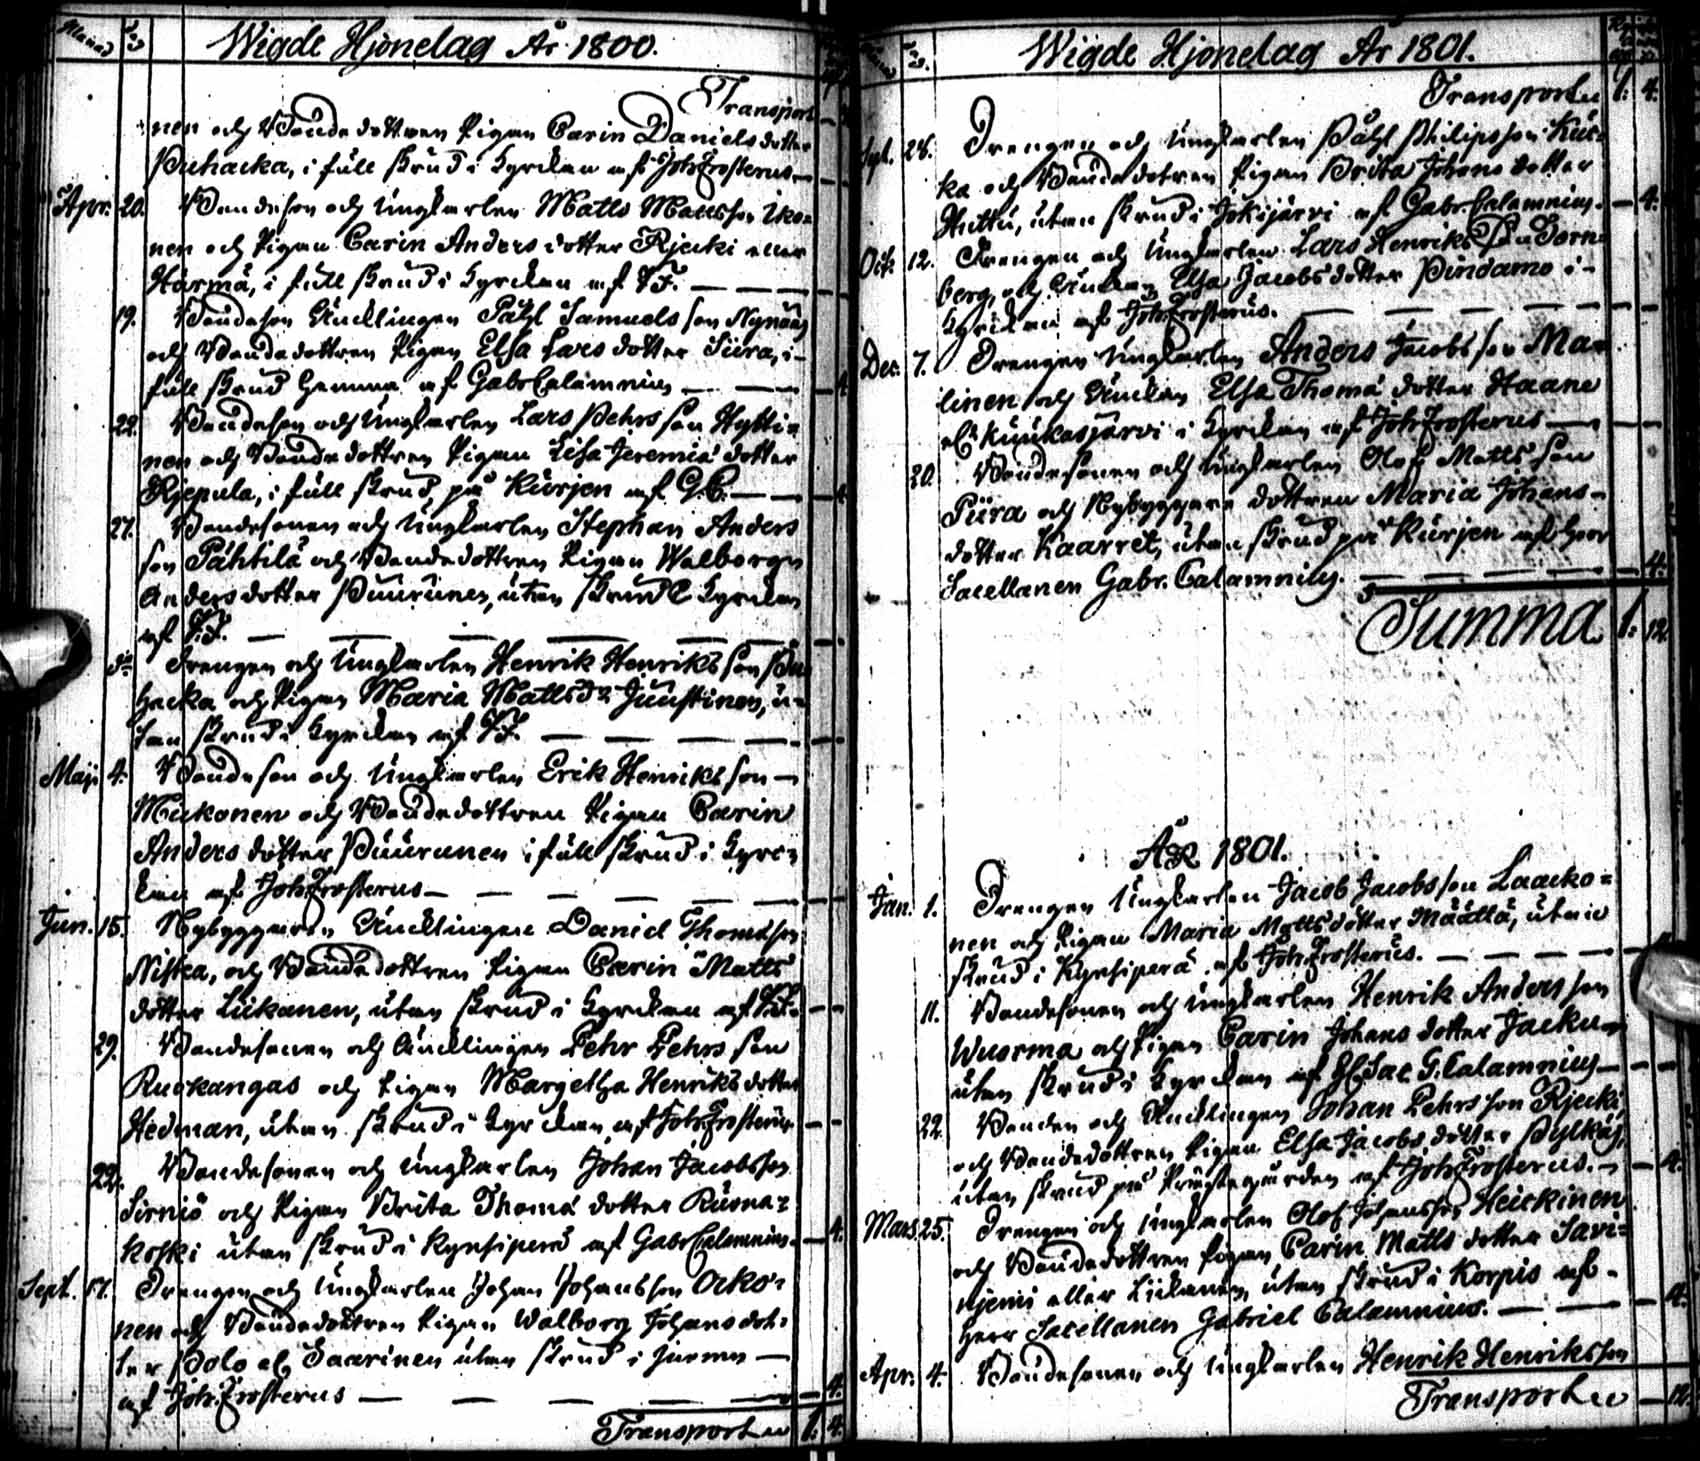 Månad
Dag
Wigde Hjonelag År 1800.
Transport
nen och Bondedottren Pigan Carin Danielsdotter
Puhacka, i full skrud i Kyrckan af Joh: Frosterus
Apr. 20. Bondeson och Ungkarlen Matts Mattsson Iko-
nen och Pigan Carin Anders dotter Kjecki eller
Härmä, i full skrud i Kyrckan af J.F.
19. Bondeson Encklingen Påhl Samuels son Nynäs
och Bondedottren Pigan Elsa Lars dotter Siira, i
full skrud hemma af Gabr. Calamnius 4
22. Bondeson och Ungkarlen Lars Pehrs son Hytti-
nen och Bondedottren Pigan Lisa Jeremiæ dotter
Kjepula, i full skrud på Kurjen af G.C. 4
27. Bondesonen och Ungkarlen Stephan Anders
son Pähtilä och Bondedottren Pigan Walborg
Anders dotter Puurunen, utan skrud i Kyrckan
af J.F.
Dn Drengen och Ungkarlen Henrik Henriks son Pu
hacka och Pigan Maria Mattsdr Juustinen, u-
tan skrud i Kyrckan af J.F.
Maji 4. Bondeson och Ungkarlen Erik Henriks son
Mukonen och Bondedottren Pigan Carin
Anders dotter Puurunen i full skrud i Kyrc-
kan af Joh: Frosterus
Jun. 15. Nybyggaren Encklingen Daniel Thomæ son
Niska, och Bondedottren Pigan Carin Matts
dotter Liikanen, utan skrud i Kyrckan af J.F.
29. Bondesonen och Encklingen Pehr Pehrs son
Ruokangas och Pigan Margetha Henriks dotter
Hedman, utan skrud i Kyrckan af Joh: Frosterus
22. Bondesonen och Ungkarlen Johan Jacobsson
Sirniö och Pigan Brita Thomæ dotter Ruona-
koski utan skrud i Kynsiperä af Gabr. Calamnius 4.
Sept. 17. Drengen och Ungkarlen Johan Johansson Ocko-
nen och Bondedottren Pigan Walborg Johans dot-
ter Polo al. Saarinen utan skrud i
af Joh: Frosterus 4.
Transporteu 1: 4.
Wigde Hjonelag År 1801.
Transporteu 1: 4.
Sept. 28. Drengen och Ungkarlen Påhl Philipsson Kur-
ka och Bondedotren Pigan Brita Johans dotter
Huttu, utan skrud i Jokijärvi af Gabr. Calamnius. 4.
Oct. 12. Drengen och Ungkarlen Lars Henriks Son Törn-
berg, och Enkan Elsa Jacobs dotter Pindamo i
Kyrckan af Joh: Frosterus.
Dec. 7. Drengen Ungkarlen Anders Jacobs son Ma-
linen och Enckan Elsa Thomæ dotter Haane
al. Kuukasjärvi i Kyrckan af Joh: Frosterus
20. Bondesonen och Ungkarlen Olof Matts son
Piira och Nybyggare dottren Maria Johans-
dotter Kaarret, utan skrud på Kurjen af Herr
Sacellanen Gabr. Calamnius. 4.
Summa 1: 12.
ÅR 1801.
Jan. 1. Drengen Ungkarlen Jacob Jacobs son Laacko-
nen och Pigan Maria Mattsdotter Määttä, utan
skrud i Kynsiperä af Joh: Frosterus.
11. Bondesonen och Ungkarlen Henrik Anders son
Wuorma och Pigan Carin Johans dotter Jacku
utan skrud i Kyrckan af H. Sac G. Calamnius
22. Bonden och Encklingen Johan Pehrs son Kjecki
och Bondedottren Pigan Elsa Jacobs dotter Pylkäs,
utan skrud på Prästegården af Joh: Frosterus. 4.
Mars. 25. Drengen och Ungkarlen Olof Johansson Heickinen
och Bondedottren Pigan Carin Matts dotter Savi-
njemi eller Liikanen, utan skrud i Korpis af
Herr Sacellanen Gabriel Calamnius. 4.
Apr. 4. Bondesonen och Ungkarlen Henrik Henriksson
Transporteu 12.